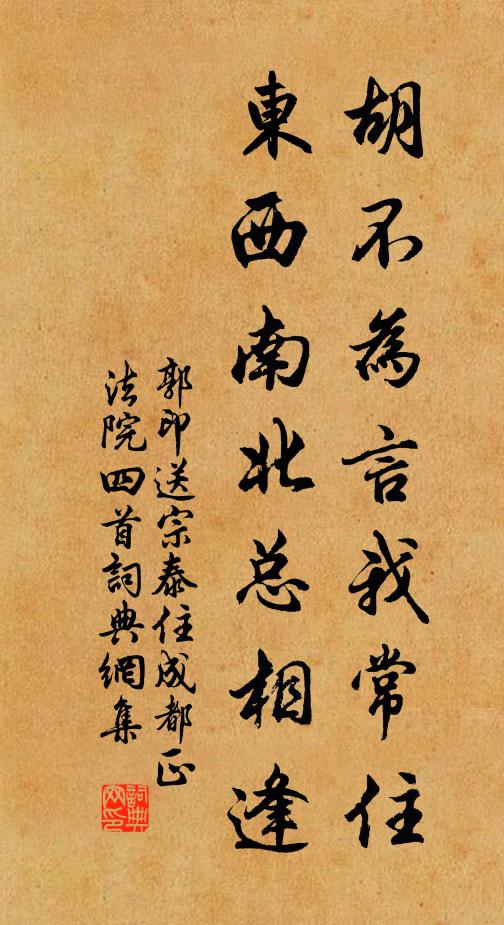 胡不為言我常住
東西南北总相逢
郭印送宗泰住成都正
法院四首詞典網集
詞典网印